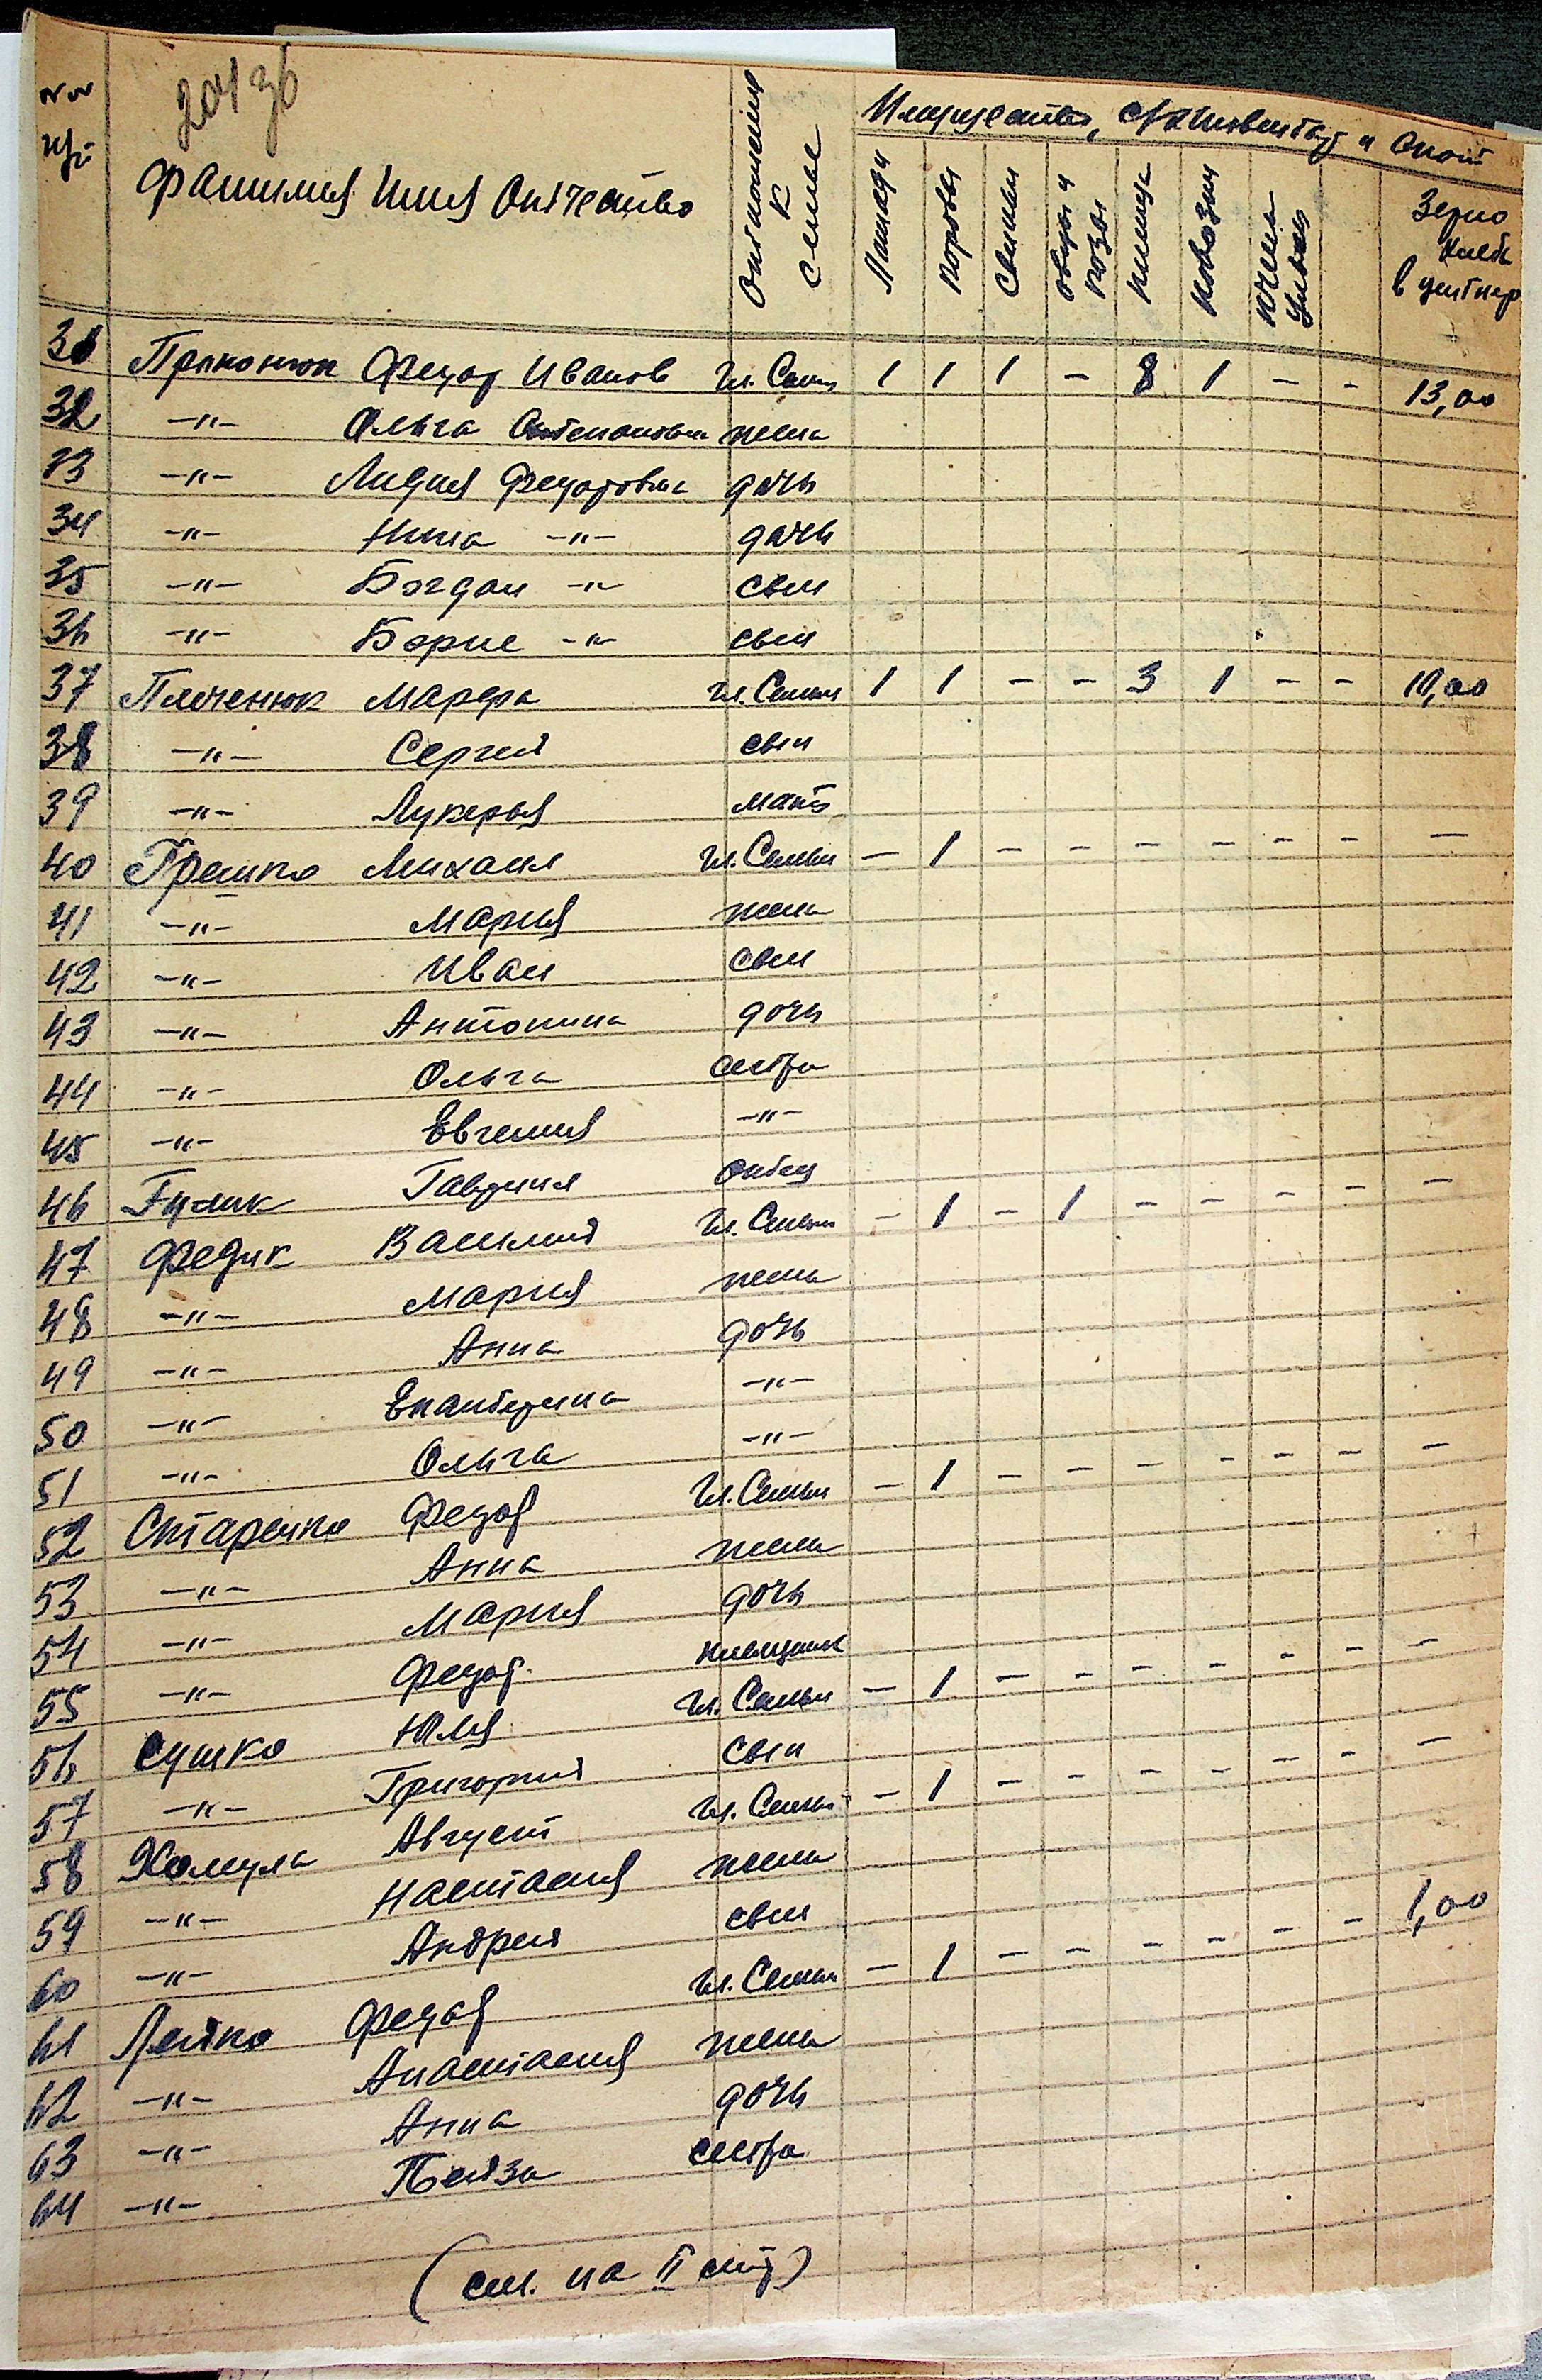 20436
№№ п/п Фамилия Имя Отчество Отношение к семье Имущество, с/х инвентарь и скот
Лошади Коровы Свиньи Овцы и козы Птица Повозки Зерно хлеба в центнер
31 Прокопюк Федор Иванов Гл. Семьи 1 1 1 - 8 1 - - 13,00
32 -"- Ольга Степановна жена
33 -"- Лидия Федоровна дочь
34 -"- Нина -"- дочь
35 -"- Богдан -"- сын
36 -"- Борис -"- сын
37 Плеченюк Марфа Гл. Семьи 1 1 - - 3 1 - - 10,00
38 -"- Сергей сын
39 -"- Лукерья мать
40 Грешко Михаил Гл. Семьи - 1 - - - - - - -
41 -"- Мария жена
42 -"- Иван сын
43 -"- Антонина дочь
44 -"- Ольга сестра
45 -"- Евгения -"-
46 Гаврила отец
47 Федик Василий Гл. Семьи - 1 - 1 - - - - -
48 -"- Мария жена
49 -"- Анна дочь
50 -"- Екатерина -"-
51 -"- Ольга -"-
52 Старенко Федор Гл. Семьи - 1 - - - - - - -
53 -"- Анна жена
54 -"- Мария дочь
55 -"- Федор племяник
56 Сушко Юлия Гл. Семьи - 1 - - - - - - -
57 -"- Григорий сын
58 Хомула Август Гл. Семьи - 1 - - - - - - -
59 -"- Настасия жена
60 -"- Андрей сын
61 Лейко Федор Гл. Семьи - 1 - - - - - - 1,00
62 -"- Анастасия жена
63 -"- Анна дочь
64 -"- сестра
(см. на II стр)